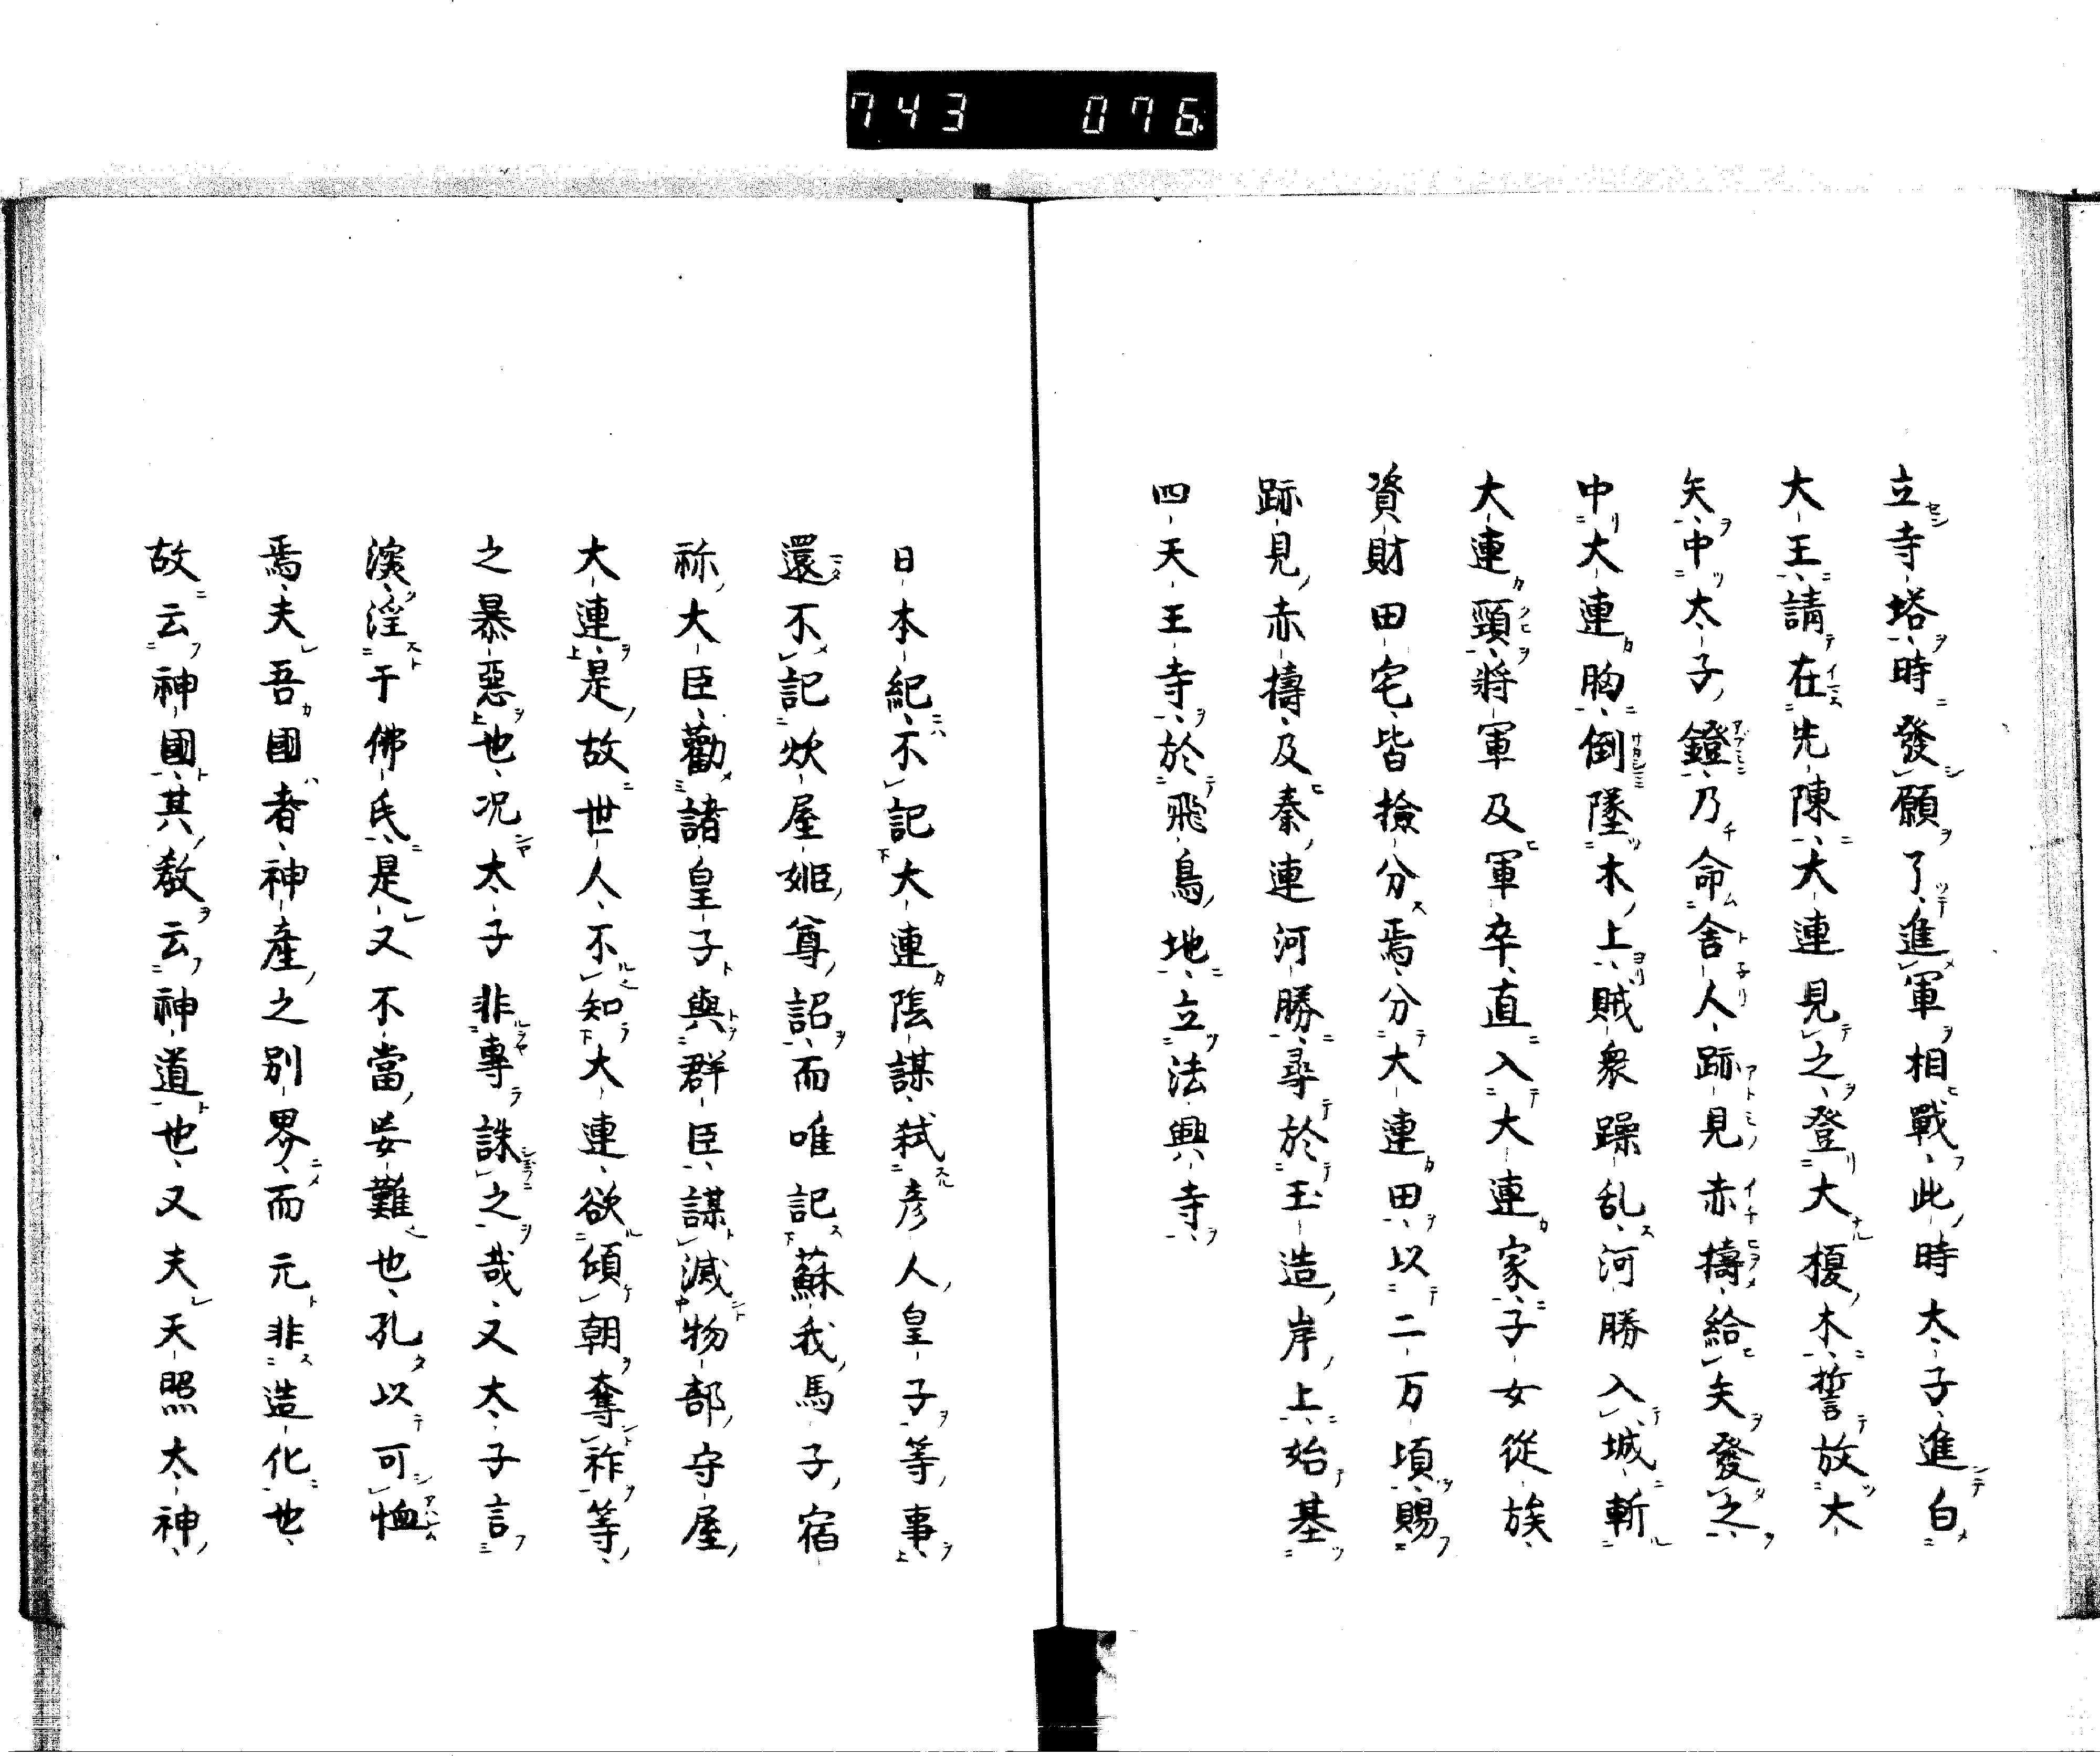 743 076
立寺塔時發願了進軍相戰此時太子進白
大王請在先陳大連見之登大榎木誓放大
矢中太子鐙乃命舍人跡見赤檮給矢發之
中大連胸倒墜木上賊衆躁乱河勝入城斬
大連頸將軍及軍卒直入大連家子女從族
資財田宅皆撿分焉分大連田以二万頃賜
跡見赤檮及秦連河勝尋於玉造岸上始基
四天王寺於飛鳥地立法興寺
日本紀不記大連陰謀弑彦人皇子等事
還不記炊屋姬尊詔而唯記蘇我馬子宿
祢大臣勸諸皇子與群臣謀滅物部守屋
大連是故世人不知大連欲傾朝奪祚等
之暴惡也况太子非專誅之哉又太子言
淫于佛氏是又不當妄難也孔以可恤
焉夫吾國者神產之別界而元非造化也
故云神國其教云神道也又夫天照太神